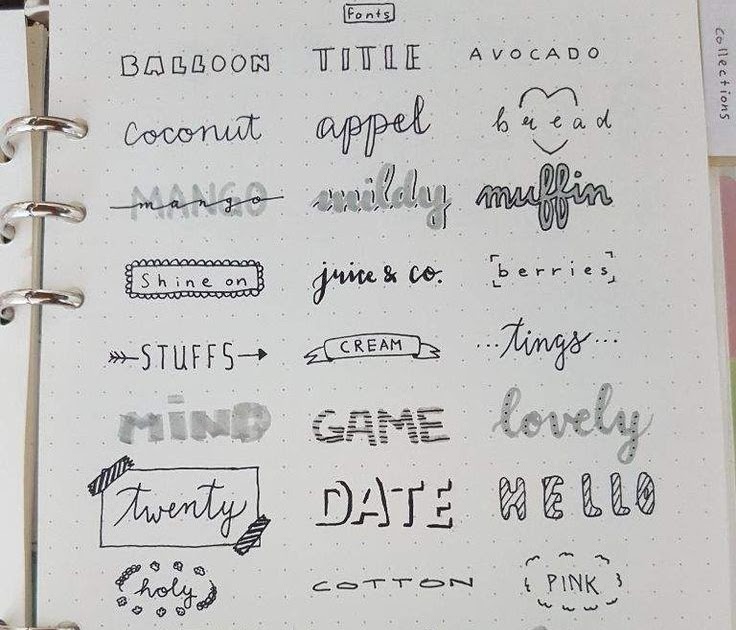 Fonts
BALLOON TITLE AVOCADO
coconut appel bread
MANGO mango mildy muffin
Shine on juice & co. berries
STUFFS CREAM ...tings...
MIND GAME lovely
twenty DATE HELLO
holy COTTON PINK
Collections